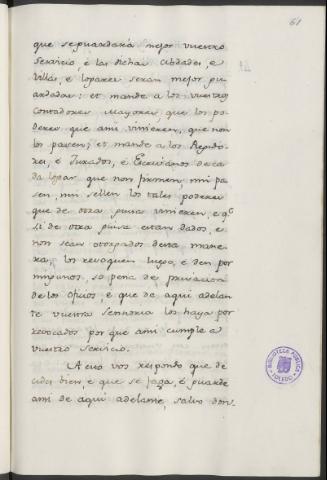 61
que se guardará mejor vuestro
servicio, é las dichas Cibdades, e
Villas, e logares seran mejor gu-
ardadas: et mande a los vuestros
Contadores Mayores, que los po-
deres que ansi vinieren, que non
los pasen; et mande a los Regido-
res, é Jurados, é Escrivanos de ca-
da logar que non firmen, nin pa-
sen, nin sellen los tales poderes
que de otra guisa vinieren, e q.e
si de otra guisa estan dados, e
non sean otorgados desta mane-
ra, los revoquen luego, e den por
ningunos, so pena de privacion
de los oficios, e que de aqui adelan-
te vuestra Sennoria los haya por
revocados por que ansi cumple a
vuestro servicio.
A esto vos respondo que de-
cides bien, e que se faga, é guarde
ansi de aqui adelante, salvo don-
BIBLIOTECA PUBLICA
TOLEDO